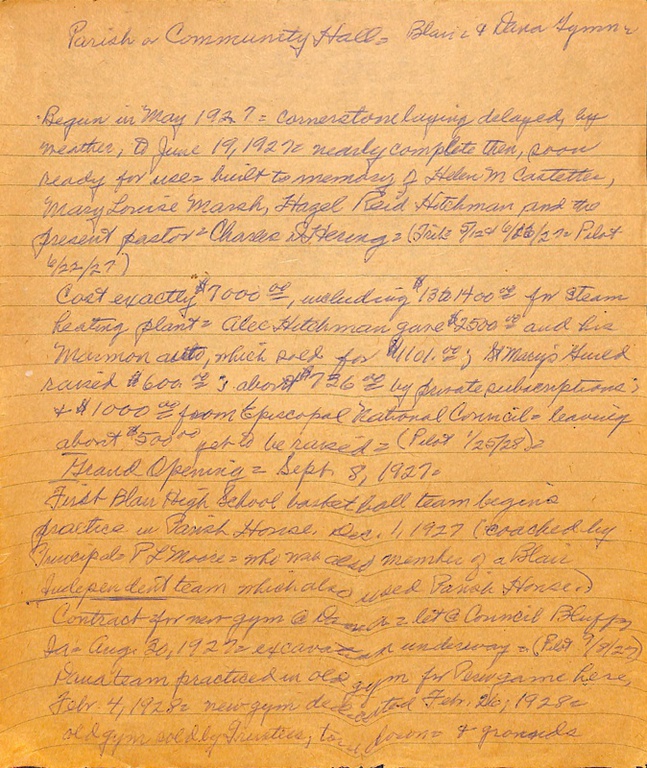 Parish or Community Hall = Blair & Dana Gymn =
Begun in May 1927 = cornerstone laying delayed, by
weather, to June 19, 1927 = nearly complete then, soon
ready for use = built to memory of Helen M Castetter,
Mary Louise Marsh, Hazel Reid Hitchman and the
present pastor = Charles D Hering = (Trib = 5/12 & 6/ /27 = Pilot
6/22/27)
Cost exactly $7000.00, including $13 to 1400.00 for steam
heating plant = Alec Hitchman gave $2500.00 and his
Marmon auto, which sold for $1101.00; St Mary's Guild
raised $600.00; about $736.00 by private subscriptions;
& $1000.00 from Episcopal National Council = leaving
about $500.00 yet to be raised = (Pilot 1/25/28) =
Grand Opening = Sept. 8, 1927 =
First Blair High School basketball team begins
practice in Parish House, Dec. 1, 1927 (coached by
Principal = P L Moore = who was also member of a Blair
Independent team which also used Parish House.)
Contract for new gym @ Dana = let @ Council Bluffs,
Ia = Aug. 30, 1927 = excavation underway = (Pilot 9/8/27)
Dana team practiced in old gym for Peru game here,
Febr. 4, 1928 = new gym dedicated Febr. 26, 1928 =
old gym sold by Trustees, torn down = & grounds